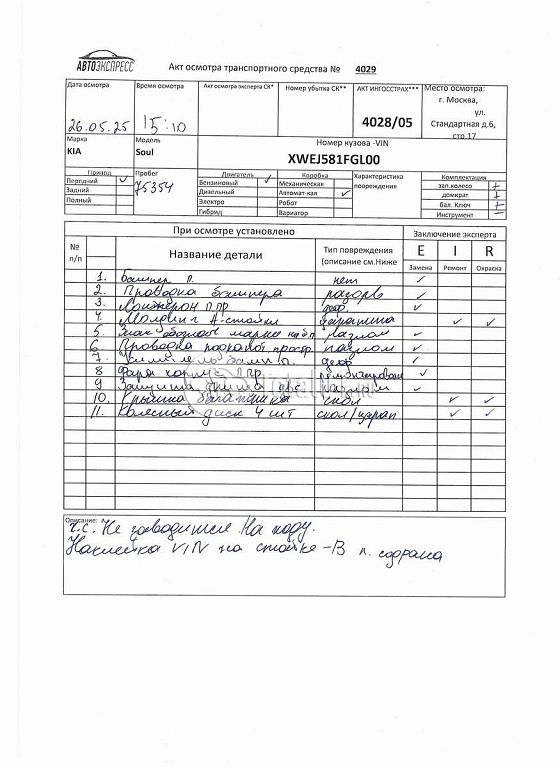 АВТОЭКСПРЕСС
Акт осмотра транспортного средства № 4029
Дата осмотра Время осмотра Акт осмотра эксперта СК* Номер убытка СК** АКТ ИНГОССТРАХ*** Место осмотра:
г. Москва,
ул.
26.05.25 15:10 4028/05 Стандартная д.6,
стр.17
Марка Модель Номер кузова -VIN
KIA Soul XWEJ581FGL00
Привод Пробег Двигатель Коробка Характеристика Комплектация
Передний ✓ 75354 Бензиновый ✓ Механическая повреждения зап.колесо +
Задний Дизельный Автомат-кая ✓ домкрат +
Полный Электро Робот бал. Ключ +
Гибрид Вариатор Инструмент -
При осмотре установлено Заключение эксперта
№ п/п Название детали Тип повреждения (описание см.Ниже E I R
Замена Ремонт Окраска
1. Бампер п. нет ✓
2. Проводка бампера разрыв ✓
3. Лонжерон п.пр деф. ✓
4. Молдинг А-стойки царапина ✓ ✓
5. Знак облицов марки разлом ✓
6. Проводка подкапот. простр. разлом ✓
7. деф ✓
8 Фара корпус п.пр. ✓
9 Защита двс разлом ✓
10. Крышка багажника скол ✓ ✓
11. Колесный диск 4 шт скол/царап ✓ ✓
Описание: Т.С. Не заводится. На ходу.
Наклейка VIN на стойке-В л. содрана